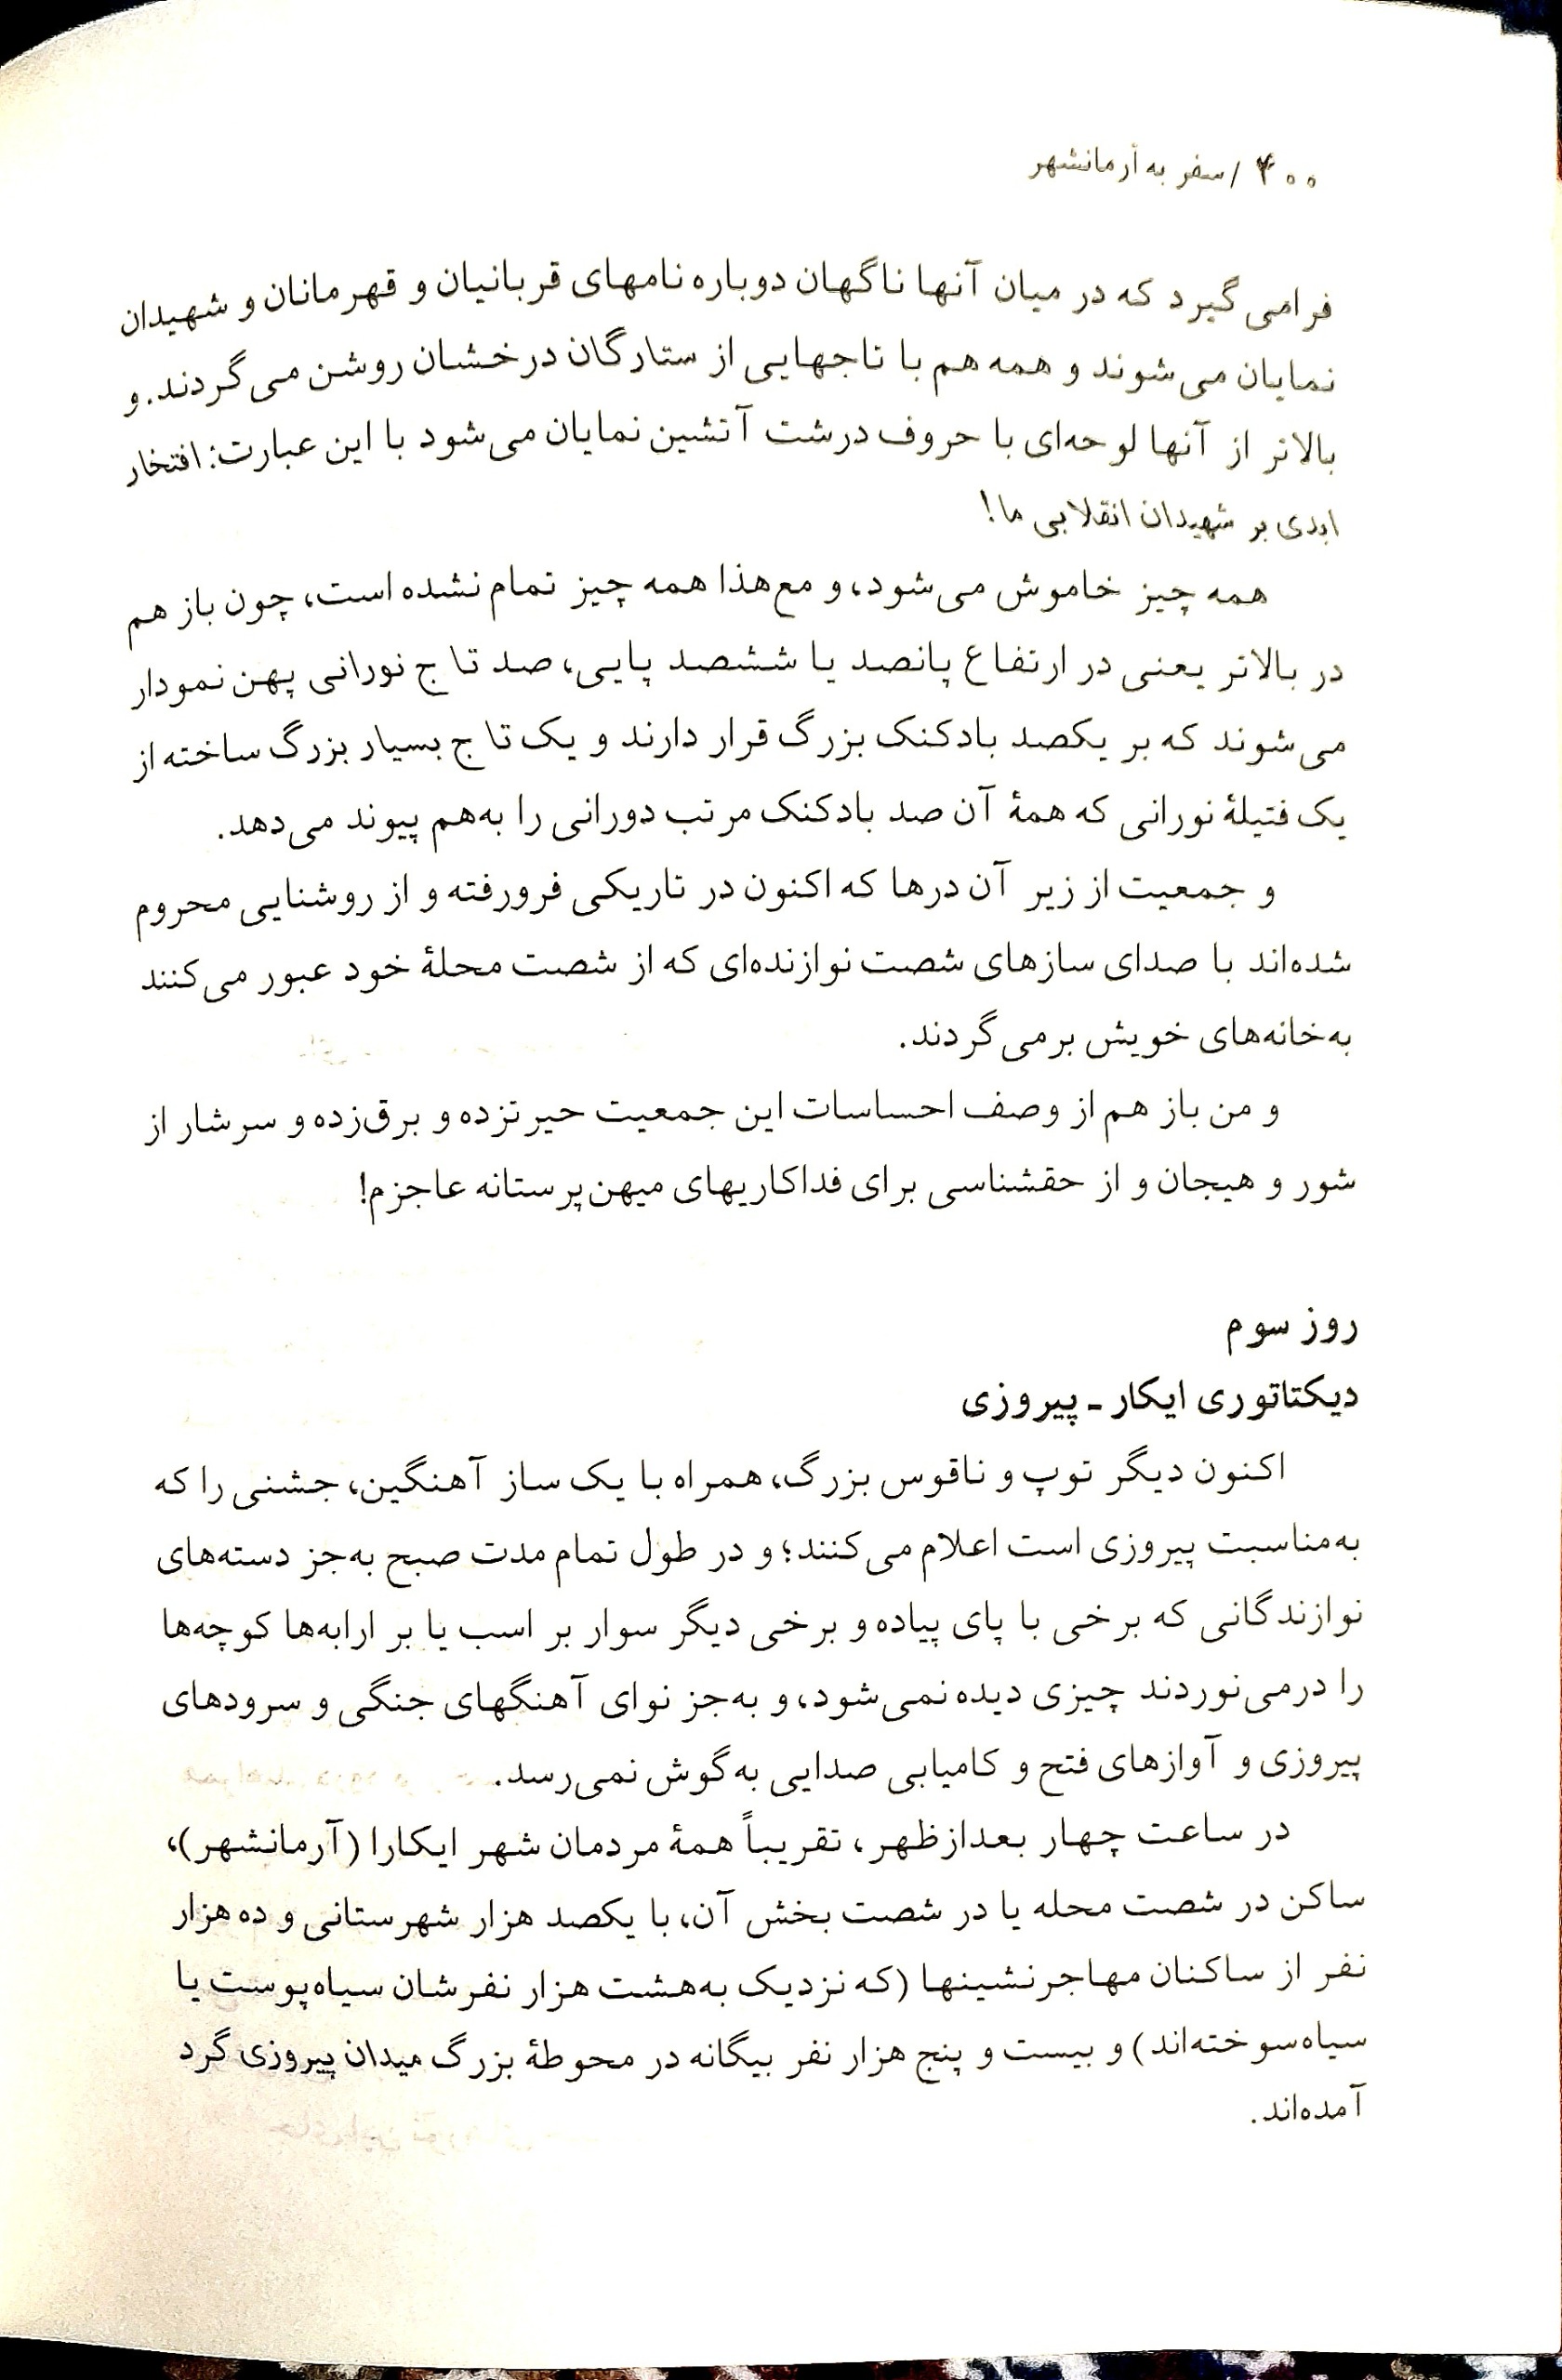 ۴۰۰ / سفر به آرمانشهر
فرامی‌گیرد که در میان آنها ناگهان دوباره نامهای قربانیان و قهرمانان و شهیدان
نمایان می‌شوند و همه هم با تاجهایی از ستارگان درخشان روشن می‌گردند. و
بالاتر از آنها لوحه‌ای با حروف درشت آتشین نمایان می‌شود با این عبارت: افتخار
ابدی بر شهیدان انقلابی ما!
همه چیز خاموش می‌شود، و مع‌هذا همه چیز تمام نشده است، چون باز هم
در بالاتر یعنی در ارتفاع پانصد یا ششصد پایی، صد تاج نورانی پهن نمودار
می‌شوند که بر یکصد بادکنک بزرگ قرار دارند و یک تاج بسیار بزرگ ساخته از
یک فتیلهٔ نورانی که همهٔ آن صد بادکنک مرتب دورانی را به‌هم پیوند می‌دهد.
و جمعیت از زیر آن درها که اکنون در تاریکی فرورفته و از روشنایی محروم
شده‌اند با صدای سازهای شصت نوازنده‌ای که از شصت محلهٔ خود عبور می‌کنند
به‌خانه‌های خویش برمی‌گردند.
و من باز هم از وصف احساسات این جمعیت حیرتزده و برق‌زده و سرشار از
شور و هیجان و از حقشناسی برای فداکاریهای میهن‌پرستانه عاجزم!
روز سوم
دیکتاتوری ایکار ـ پیروزی
اکنون دیگر توپ و ناقوس بزرگ، همراه با یک ساز آهنگین، جشنی را که
به‌مناسبت پیروزی است اعلام می‌کنند؛ و در طول تمام مدت صبح به‌جز دسته‌های
نوازندگانی که برخی با پای پیاده و برخی دیگر سوار بر اسب یا بر ارابه‌ها کوچه‌ها
را درمی‌نوردند چیزی دیده نمی‌شود، و به‌جز نوای آهنگهای جنگی و سرودهای
پیروزی و آوازهای فتح و کامیابی صدایی به‌گوش نمی‌رسد.
در ساعت چهار بعدازظهر، تقریباً همهٔ مردمان شهر ایکارا (آرمانشهر)،
ساکن در شصت محله یا در شصت بخش آن، با یکصد هزار شهرستانی و ده هزار
نفر از ساکنان مهاجرنشینها (که نزدیک به‌هشت هزار نفرشان سیاه‌پوست یا
سیاه‌سوخته‌اند) و بیست و پنج هزار نفر بیگانه در محوطهٔ بزرگ میدان پیروزی گرد
آمده‌اند.